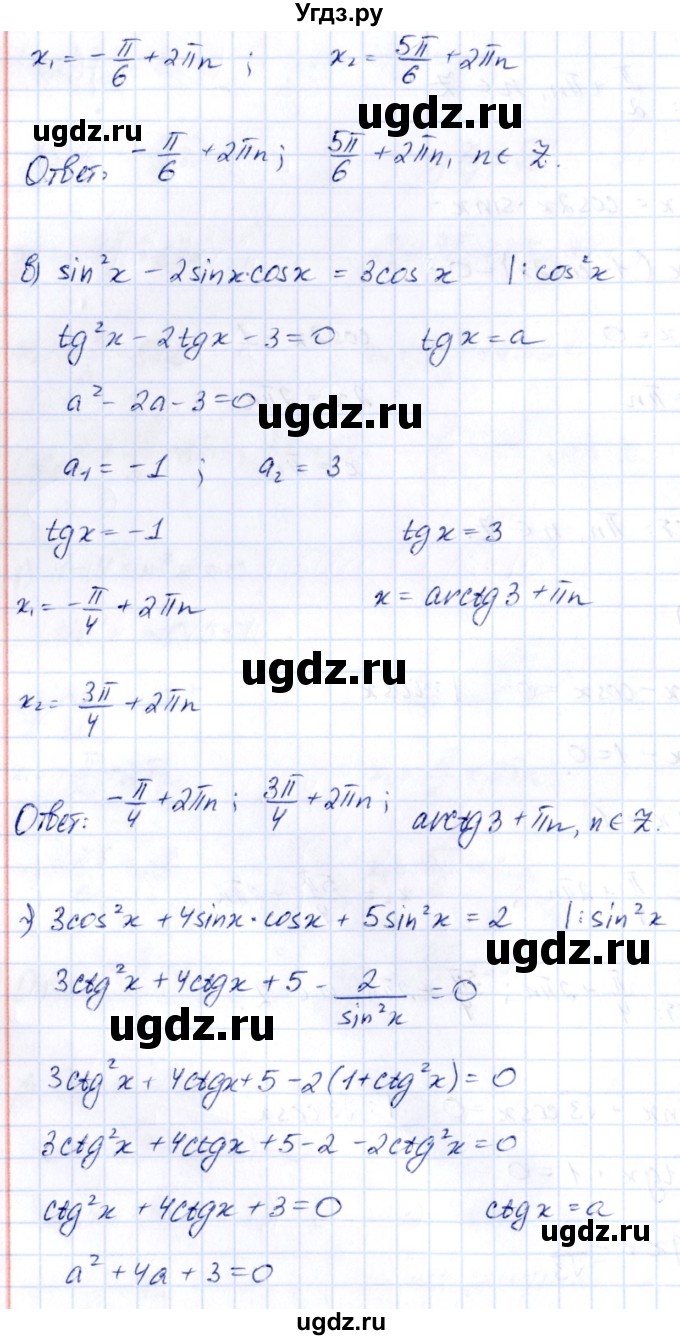 Угдз.ру
x₁ = -π/6 + 2πn ; x₂ = 5π/6 + 2πn
ugdz.ru
ugdz.ru
Ответ: -π/6 + 2πn; 5π/6 + 2πn, n ∈ Z.
в) sin²x - 2sinx·cosx = 3cos x |: cos²x
tg²x - 2tgx - 3 = 0 tgx = a
a² - 2a - 3 = 0
ugdz.ru
a₁ = -1 ; a₂ = 3
tgx = -1 tgx = 3
x₁ = -π/4 + 2πn x = arctg3 + πn
ugdz.ru
x₂ = 3π/4 + 2πn
Ответ: -π/4 + 2πn; 3π/4 + 2πn; arctg3 + πn, n ∈ Z.
г) 3cos²x + 4sinx·cosx + 5sin²x = 2 |: sin²x
ugdz.ru
3ctg²x + 4ctgx + 5 - 2/sin²x = 0
ugdz.ru
3ctg²x + 4ctgx + 5 - 2(1 + ctg²x) = 0
3ctg²x + 4ctgx + 5 - 2 - 2ctg²x = 0
ctg²x + 4ctgx + 3 = 0 ctgx = a
ugdz.ru
a² + 4a + 3 = 0
ugdz.ru